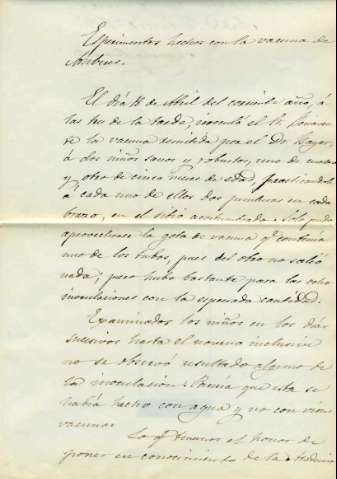 Esperimentos hechos con la vacuna de
El día 18 de Abril del corriente año, á
las tres de la tarde, inoculó el Sr.
de la vacuna remitida por el Dr.
á dos niños sanos y robustos, uno de cuatro
y otro de cinco meses de edad, practicando
á cada uno de ellos dos punturas en cada
brazo, en el sitio acostumbrado. Solo pudo
aprovecharse la gota de vacuna qe contenia
uno de los tubos, pues del otro no salió
nada; pero hubo bastante para las ocho
inoculaciones con la espresada cantidad.
Examinados los niños en los dias
sucesivos hasta el noveno inclusive
no se observó resultado alguno de
la inoculacion. Parecia que esta se
habia hecho con agua y no con virus
vacuno.
Lo qe tenemos el honor de
poner en conocimiento de la Academia